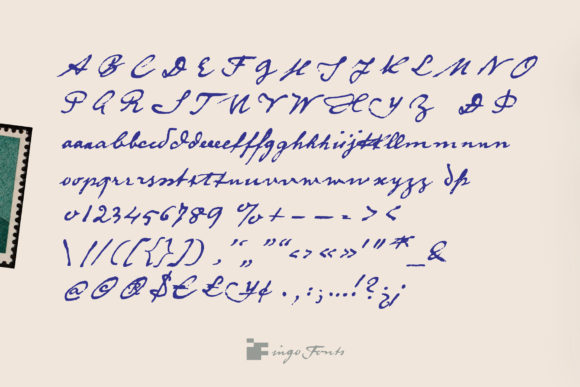 A B C D E F G H I J K L M N O
P Q R S T U V W X Y Z Ð Þ
aaaabbccdddeeeefffgghhhiijkkllmmmnnn
oopqrrrrssststttuuuvvwwwxyzzz ðþ
0123456789 % + – — = > <
\ | / ( [ { } ] ) , ' " „ " “ ‹ › « » ' " * _ &
@ © ® $ € £ ¥ ¢ . , : ; ... ! ? ¿ ¡
ingo Fonts